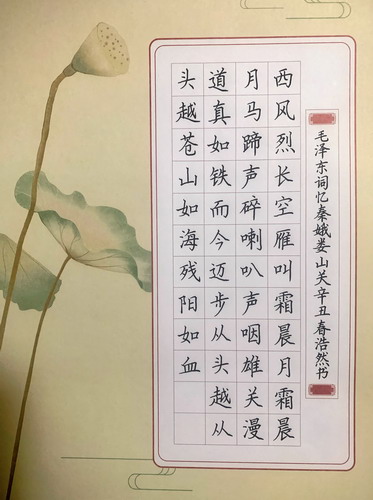 毛泽东词忆秦娥娄山关辛丑春浩然书
西风烈长空雁叫霜晨月霜晨
月马蹄声碎喇叭声咽雄关漫
道真如铁而今迈步从头越从
头越苍山如海残阳如血